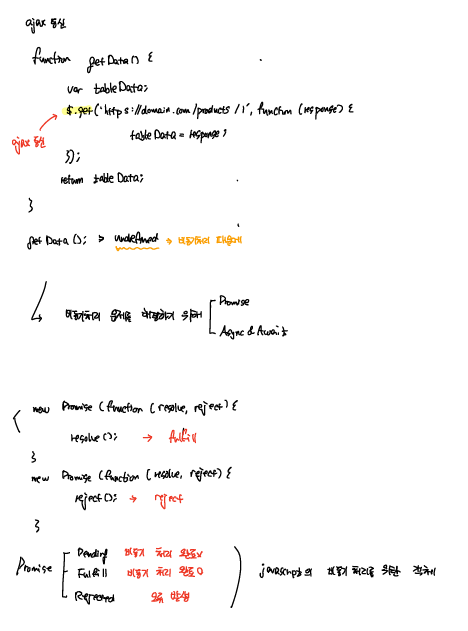 ajax 통신
function getData() {
var tableData;
$.get('https://domain.com/products/1', function (response) {
tableData = response;
ajax 통신
});
return tableData;
}
getData(); > undefined → 비동기처리 때문에
비동기처리 문제를 해결하기 위해
Promise
Async & Await
new Promise (function (resolve, reject) {
resolve(); → fulfill
}
new Promise (function (resolve, reject) {
reject(); → reject
}
Promise
Pending 비동기 처리 완료x
Fulfill 비동기 처리 완료o
Rejected 오류 발생
javascript의 비동기 처리를 위한 객체